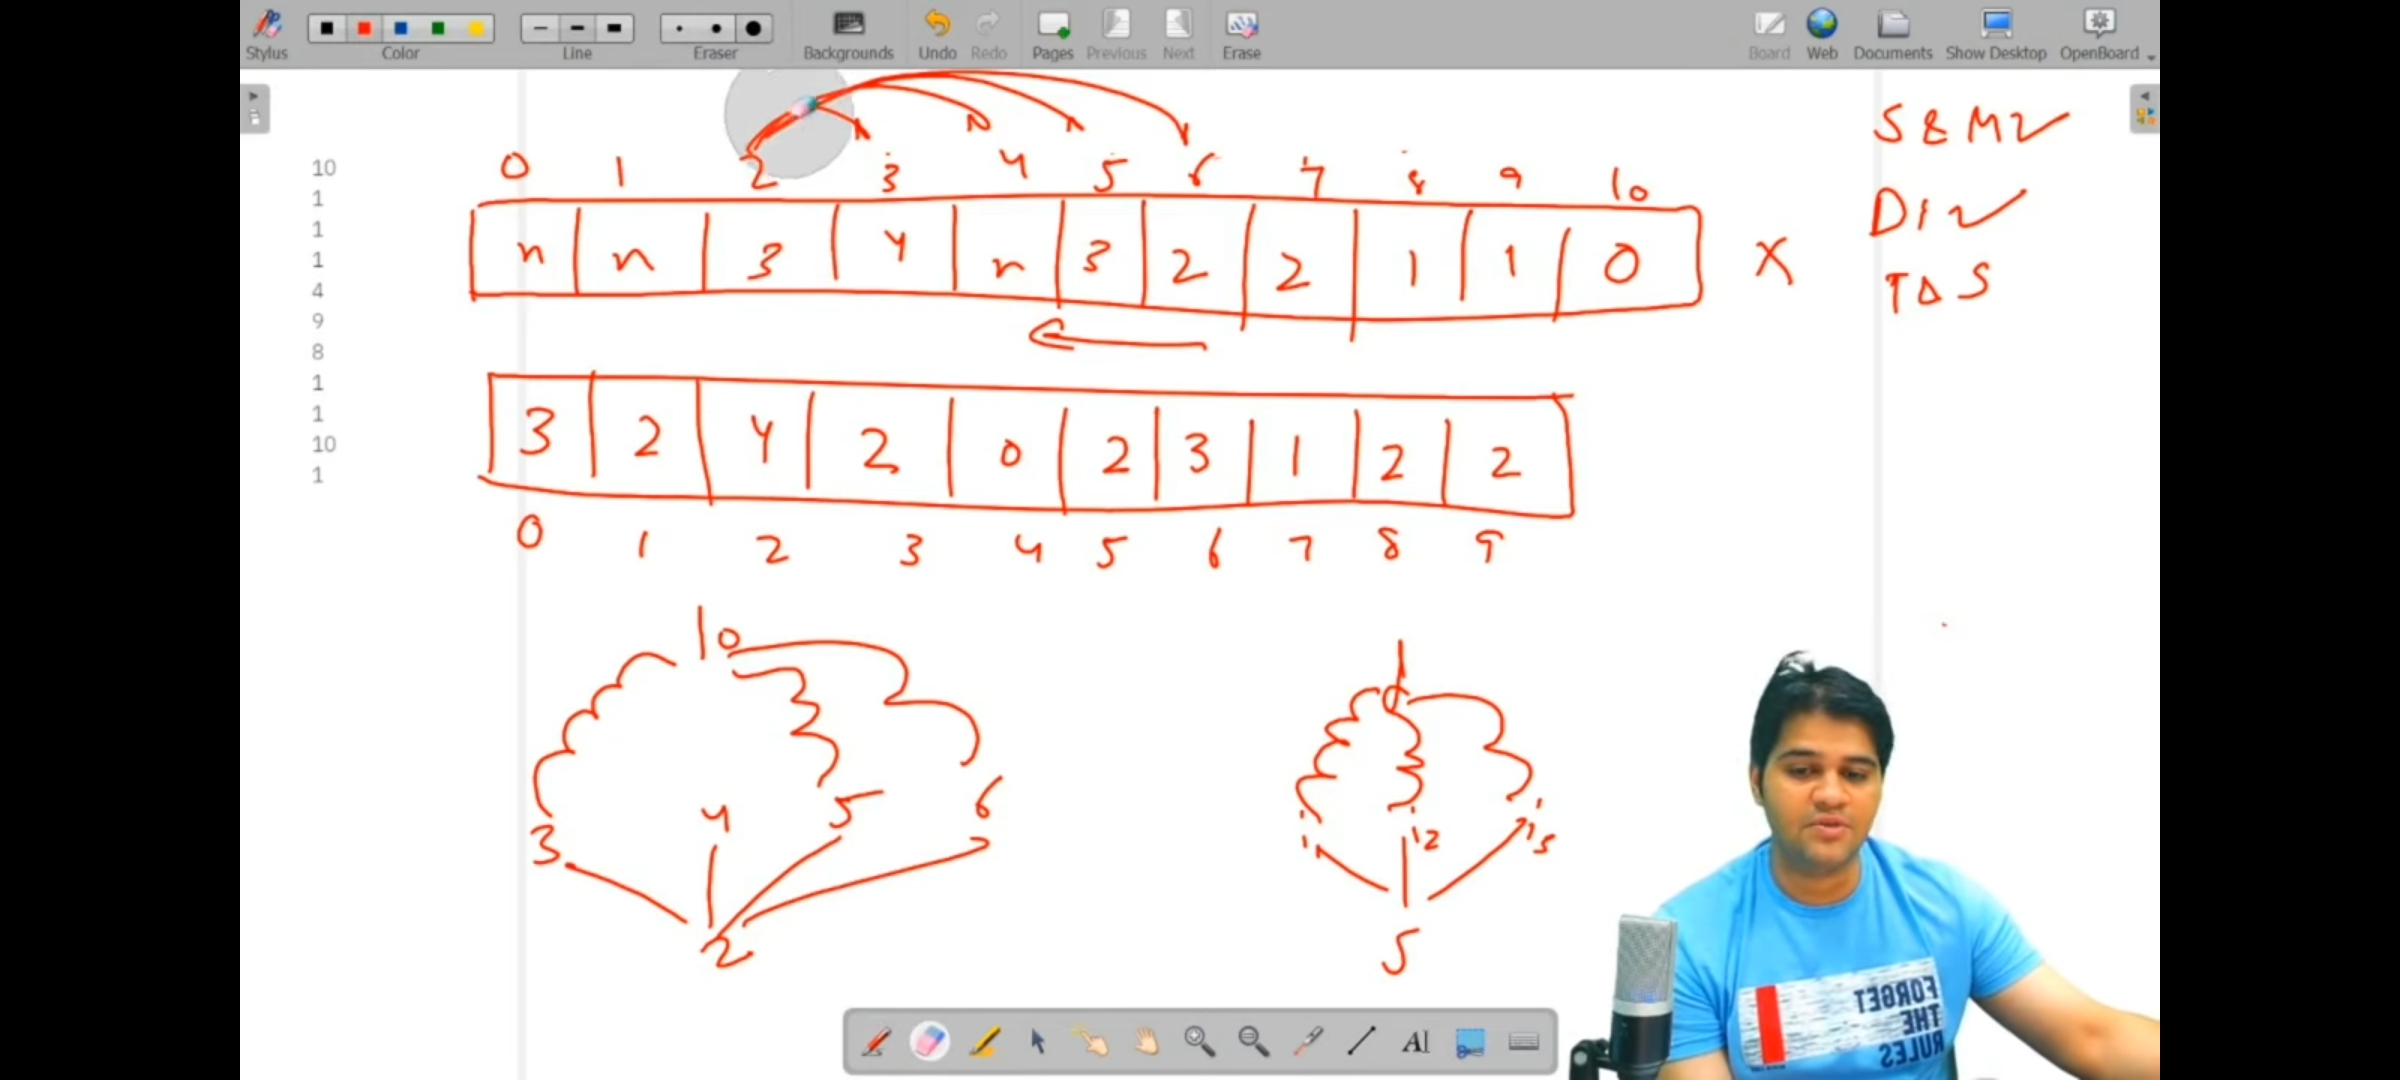 Stylus Color Line Eraser Backgrounds Undo Redo Pages Previous Next Erase Board Web Documents Show Desktop OpenBoard
S & M ✓
0 1 2 3 4 5 6 7 8 9 10
D I ✓
n n 3 4 n 3 2 2 1 1 0 X
T & S
10
1
1
1
4
9
8
1
1
10
1
3 2 4 2 0 2 3 1 2 2
0 1 2 3 4 5 6 7 8 9
10 d
3 4 5 6
2
i1 i2 i3
5
AI
FORGET
THE
RULES